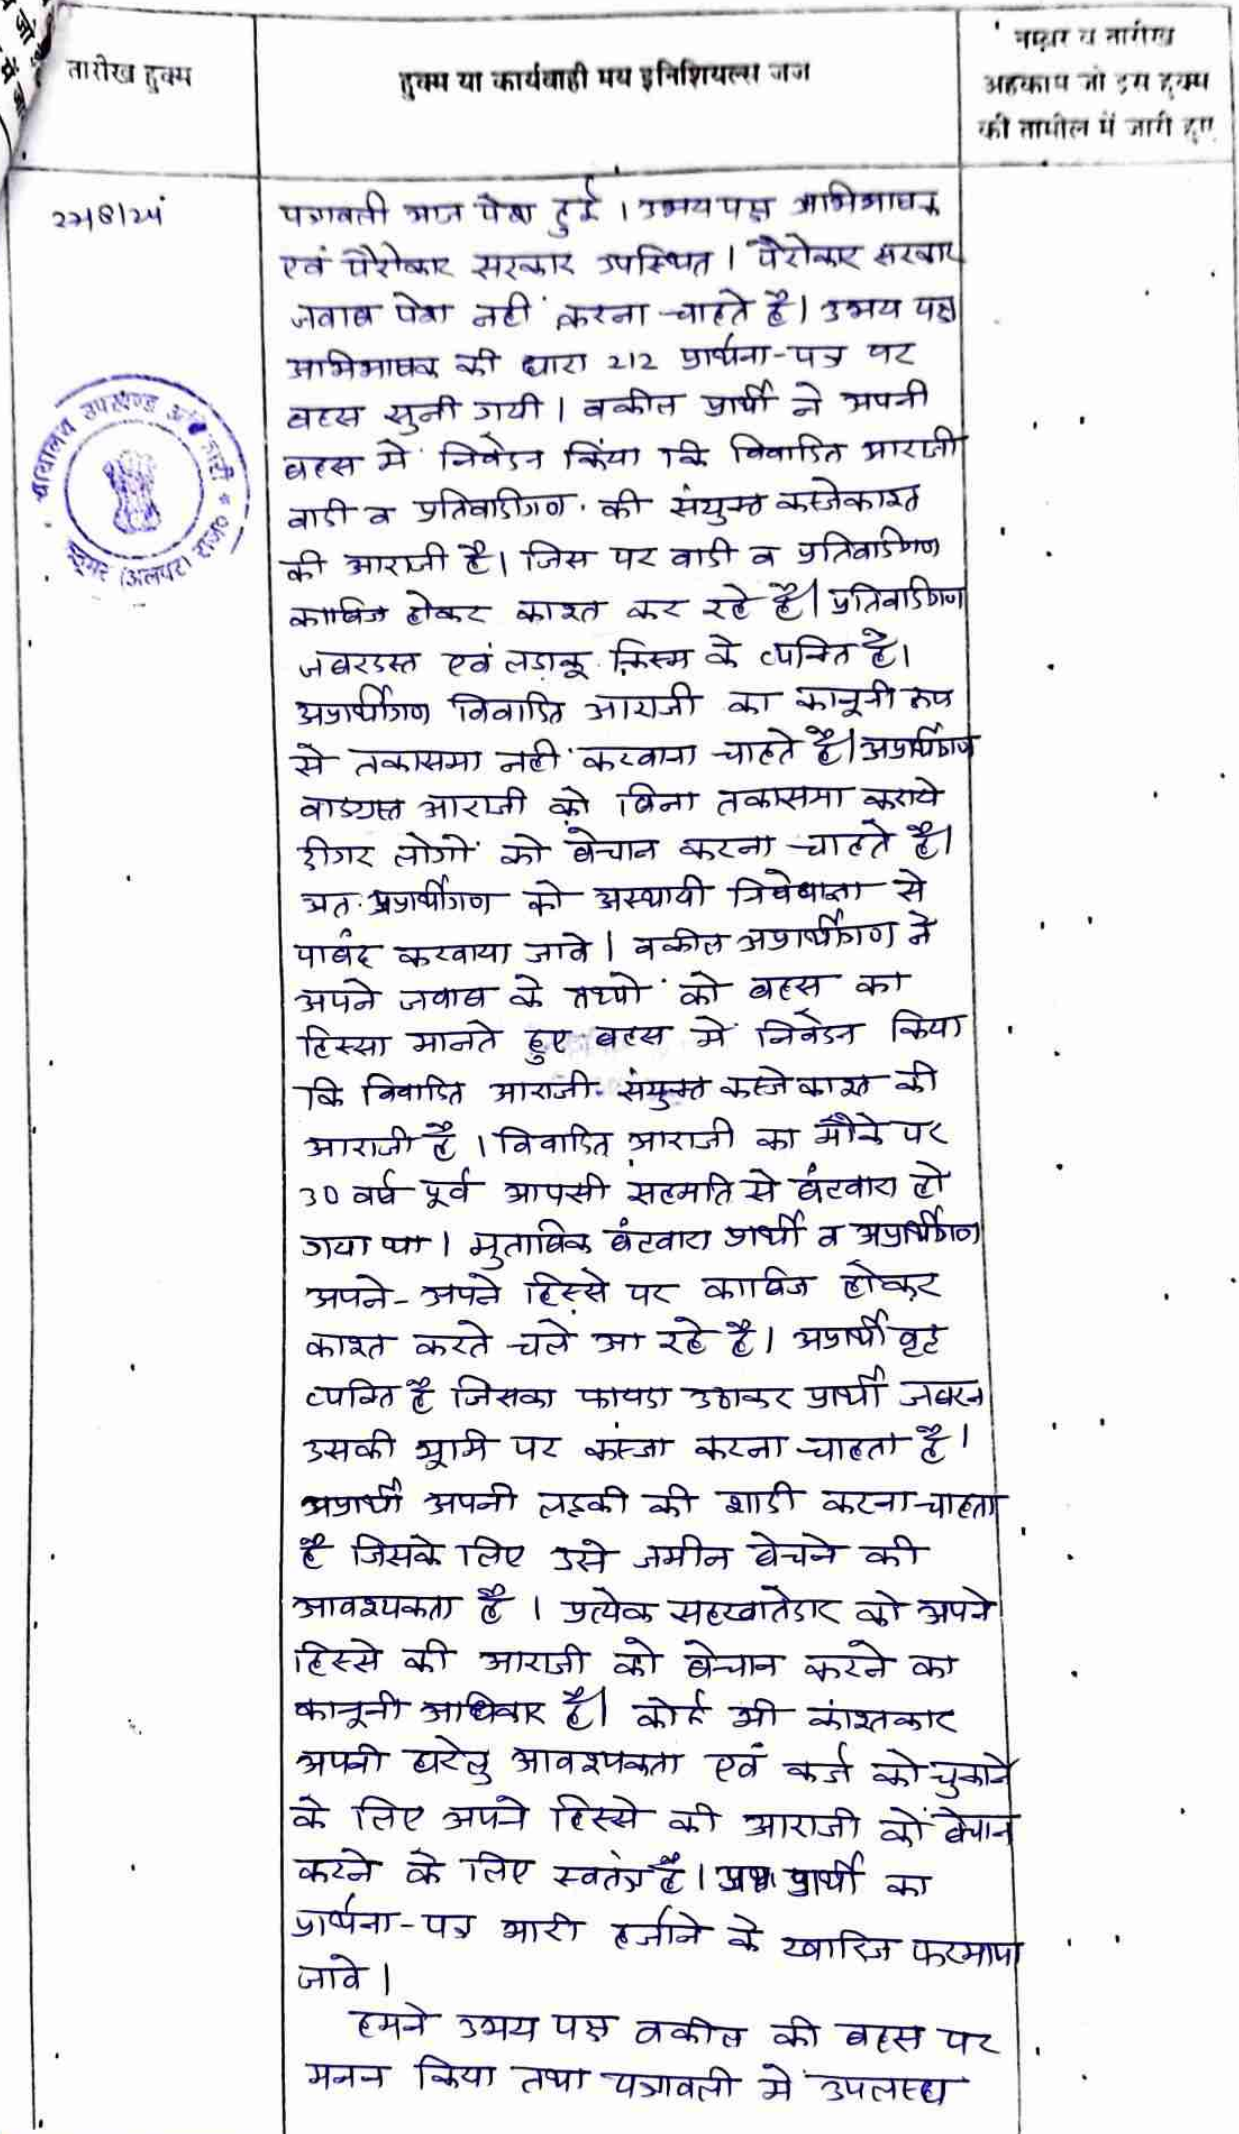 तारीख हुक्म
हुक्म या कार्यवाही मय इनिशियल्स जज
नम्बर व तारीख
अहकाम जो इस हुक्म
की तामील में जारी हुए
पत्रावली आज पेश हुई । उभयपक्ष अभिभाषक
एवं पैरोकार सरकार उपस्थित । पैरोकार सरकार
जवाब पेश नहीं करना चाहते है। उभय पक्ष
अभिभाषक की धारा 212 प्रार्थना-पत्र पर
बहस सुनी गयी । वकील प्रार्थी ने अपनी
बहस में निवेदन किया कि विवादित आराजी
वादी व प्रतिवादीगण की संयुक्त कब्जेकाश्त
की आराजी है। जिस पर वादी व प्रतिवादीगण
काबिज होकर काश्त कर रहे है। प्रतिवादीगण
जबरदस्त एवं लडाकू किस्म के व्यक्ति है।
अप्रार्थीगण विवादित आराजी का कानूनी रूप
से तकासमा नहीं करवाना चाहते है। अप्रार्थीगण
वादग्रस्त आराजी को बिना तकासमा कराये
दीगर लोगों को बेचान करना चाहते है।
अत: अप्रार्थीगण को अस्थायी निषेधाज्ञा से
पाबंद करवाया जावे । वकील अप्रार्थीगण ने
अपने जवाब के तथ्यों को बहस का
हिस्सा मानते हुए बहस में निवेदन किया
कि विवादित आराजी संयुक्त कब्जे काश्त की
आराजी है । विवादित आराजी का मौके पर
30 वर्ष पूर्व आपसी सहमति से बंटवारा हो
गया था । मुताबिक बंटवारा प्रार्थी व अप्रार्थीगण
अपने-अपने हिस्से पर काबिज होकर
काश्त करते चले आ रहे है। अप्रार्थी वृद्ध
व्यक्ति है जिसका फायदा उठाकर प्रार्थी जबरन
उसकी भूमि पर कब्जा करना चाहता है।
अप्रार्थी अपनी लडकी की शादी करना चाहता
है जिसके लिए उसे जमीन बेचने की
आवश्यकता है । प्रत्येक सहखातेदार को अपने
हिस्से की आराजी को बेचान करने का
कानूनी अधिकार है। कोई भी काश्तकार
अपनी घरेलु आवश्यकता एवं कर्ज को चुकाने
के लिए अपने हिस्से की आराजी को बेचान
करने के लिए स्वतंत्र है । प्रार्थी का
प्रार्थना-पत्र भारी हर्जाने के खारिज फरमाया
जावे ।
हमने उभय पक्ष वकील की बहस पर
मनन किया तथा पत्रावली में उपलब्ध